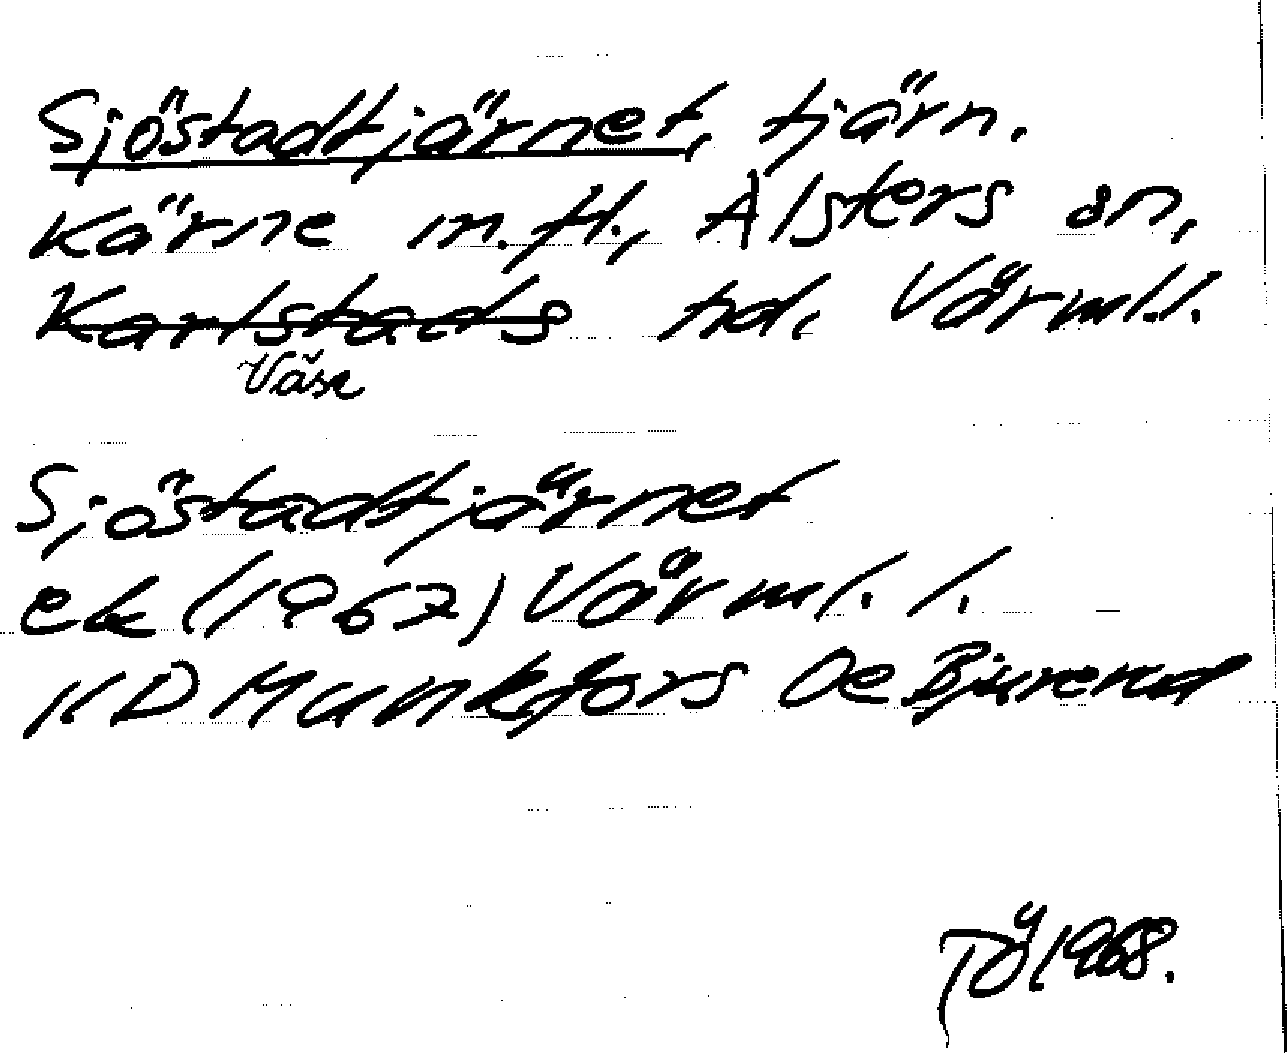 Sjöstadtjärnet, tjärn.
Kärne m.fl., Alsters sn,
Karlstads hd. Värml.l.
Väse
Sjöstadtjärnet
ek (1967) Värml. l.
11D Munkfors Oe Bjurerud
TÖ 1968.